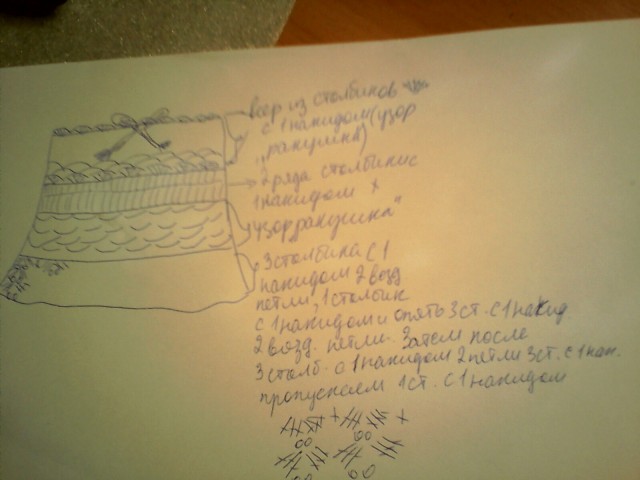 веер из столбиков
с 1 накидом (узор
„ракушка")
2 ряда столбик с
1 накидом
узор „ракушка"
3 столбика с 1
накидом 2 возд
петли, 1 столбик
с 1 накидом и опять 3 ст. с 1 накид.
2 возд. петли. Затем после
3 столб. с 1 накидом 2 петли 3 ст. с 1 нак.
пропускаем 1 ст. с 1 накидом